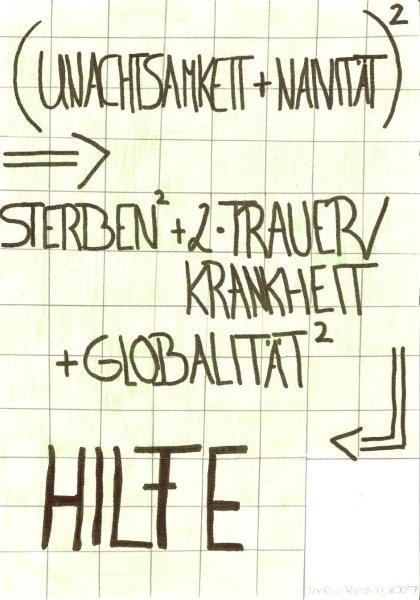 (UNACHTSAMKEIT + NAIVITÄT)²
⇒
STERBEN² + 2 · TRAUER/
KRANKHEIT
+ GLOBALITÄT²
HILFE